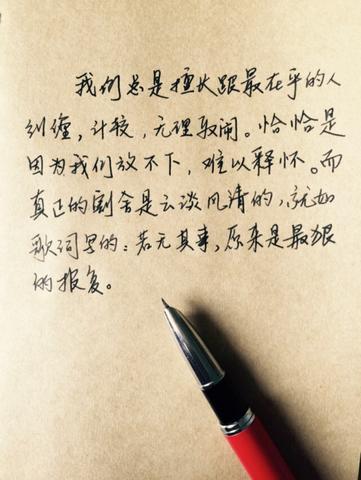 我们总是擅长跟最在乎的人
纠缠，计较，无理取闹。恰恰是
因为我们放不下，难以释怀。而
真正的割舍是云淡风清的，就如
歌词写的：若无其事，原来是最狠
的报复。